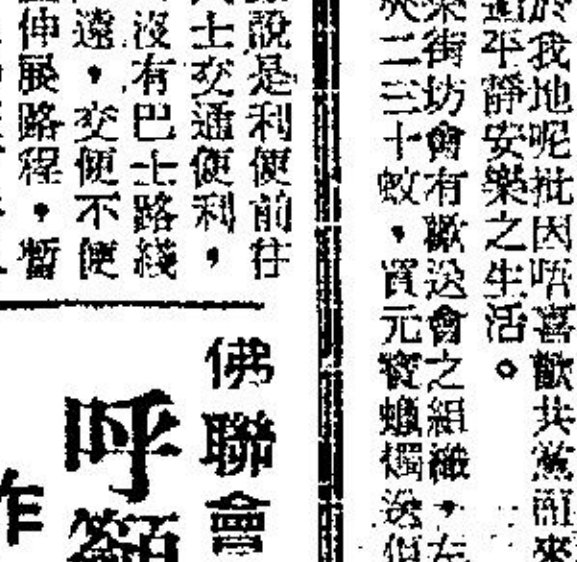 於我地呢批因唔喜歡共黨而來
平靜安樂之生活。
街坊會有歡送會之組織，左
夾二三十蚊，買元寶蠟燭送佢
說是利便前往
士交通便利，
沒有巴士路綫
遠，交便不便
伸展路程，暫
佛聯會
呼籲
作